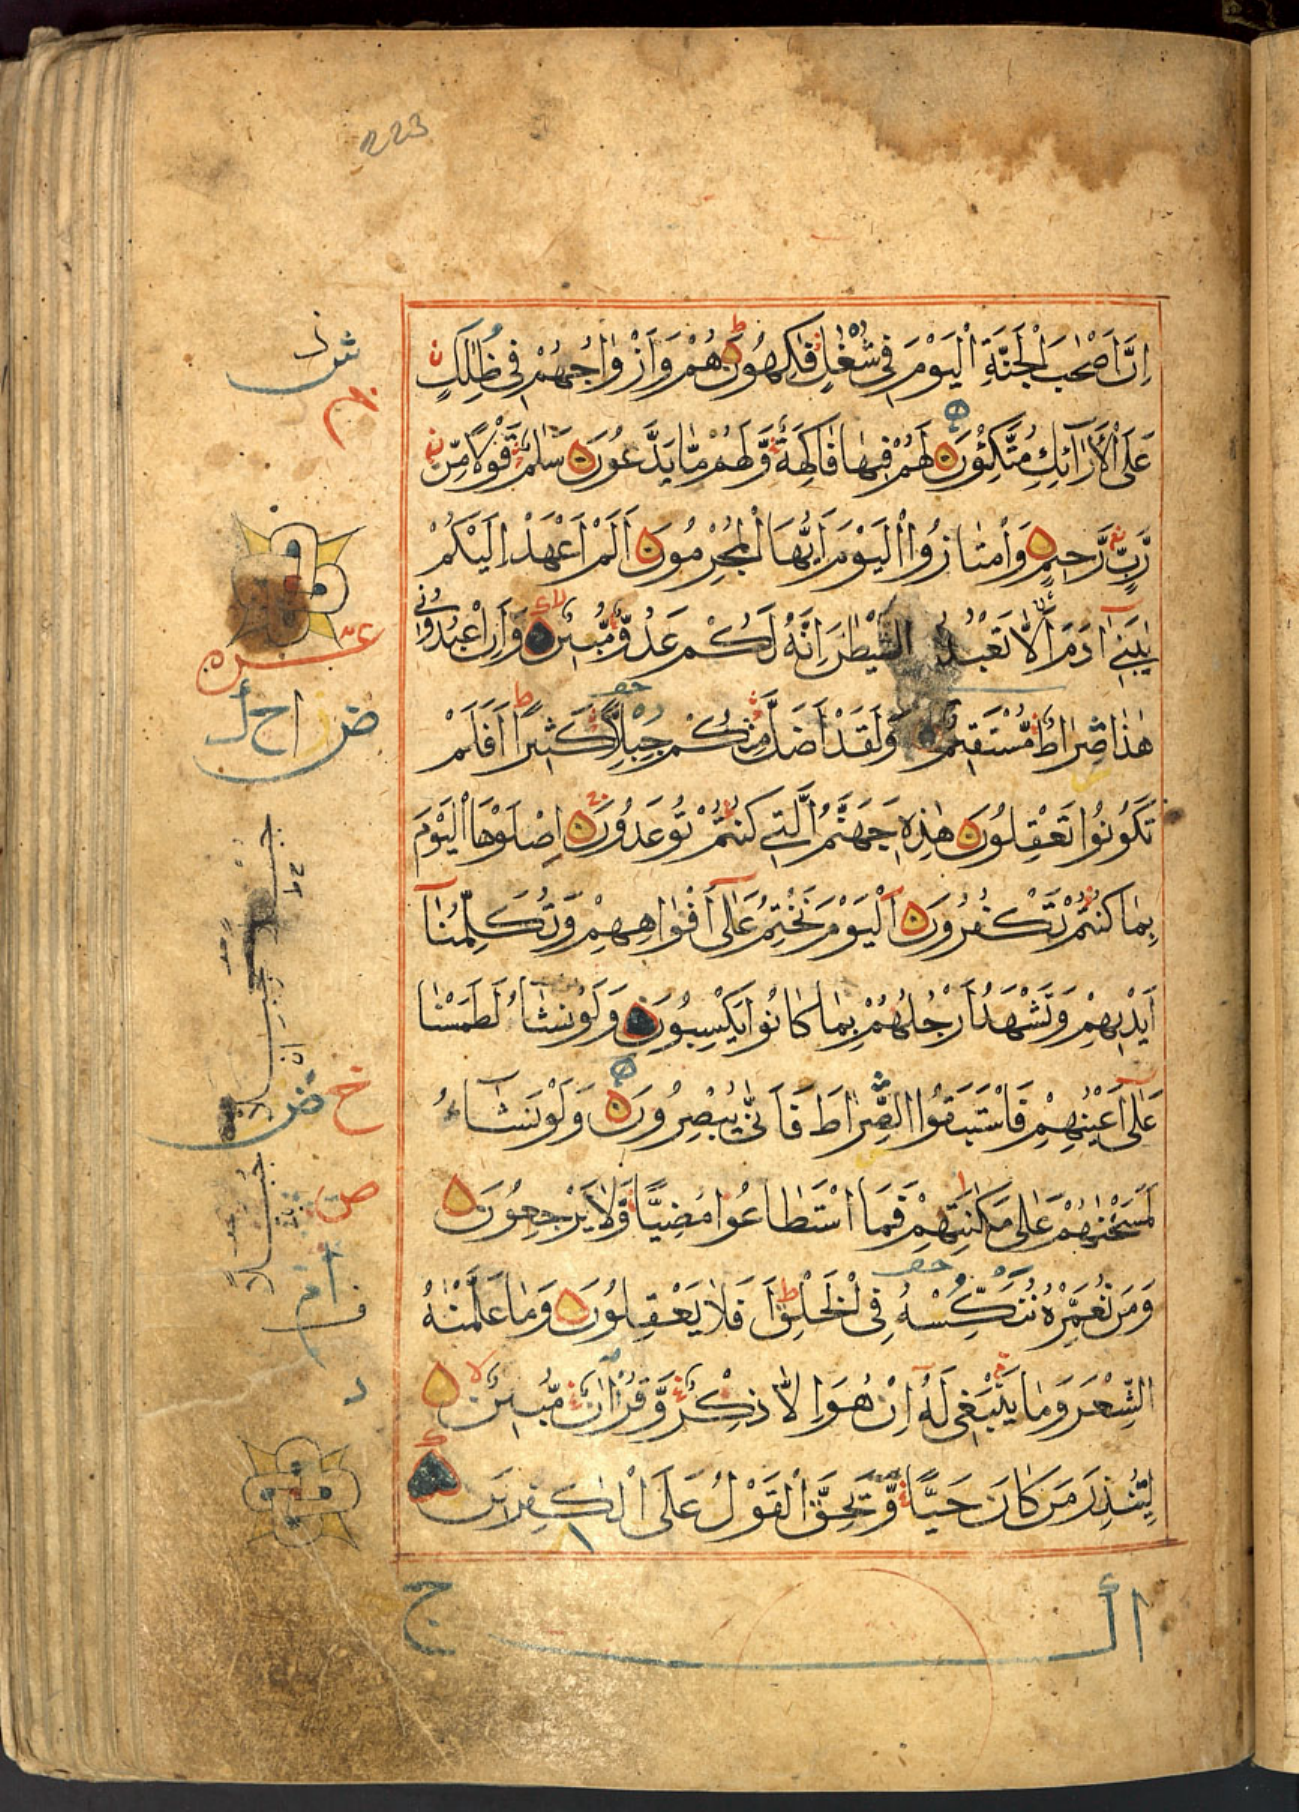 223
اِنَّ اَصْحٰبَ الْجَنَّةِ الْيَوْمَ فِى شُغُلٍ فٰكِهُونَ هُمْ وَاَزْوَاجُهُمْ فِى ظِلٰلٍ
عَلَى الْاَرَآئِكِ مُتَّكِئُونَ لَهُمْ فِيهَا فَاكِهَةٌ وَّلَهُمْ مَّا يَدَّعُونَ سَلٰمٌ قَوْلًا مِّنْ
رَّبٍّ رَّحِيمٍ وَامْتَازُوا الْيَوْمَ اَيُّهَا الْمُجْرِمُونَ اَلَمْ اَعْهَدْ اِلَيْكُمْ
يٰبَنِىٓ اٰدَمَ اَلَّا تَعْبُدُوا الشَّيْطٰنَ اِنَّهُ لَكُمْ عَدُوٌّ مُّبِينٌ وَاَنِ اعْبُدُونِى
هٰذَا صِرَاطٌ مُّسْتَقِيمٌ وَلَقَدْ اَضَلَّ مِنْكُمْ جِبِلًّا كَثِيرًا اَفَلَمْ
تَكُونُوا تَعْقِلُونَ هٰذِهِ جَهَنَّمُ الَّتِى كُنْتُمْ تُوعَدُونَ اِصْلَوْهَا الْيَوْمَ
بِمَا كُنْتُمْ تَكْفُرُونَ اَلْيَوْمَ نَخْتِمُ عَلٰىٓ اَفْوَاهِهِمْ وَتُكَلِّمُنَآ
اَيْدِيهِمْ وَتَشْهَدُ اَرْجُلُهُمْ بِمَا كَانُوا يَكْسِبُونَ وَلَوْ نَشَآءُ لَطَمَسْنَا
عَلٰىٓ اَعْيُنِهِمْ فَاسْتَبَقُوا الصِّرَاطَ فَاَنّٰى يُبْصِرُونَ وَلَوْ نَشَآءُ
لَمَسَخْنٰهُمْ عَلٰى مَكَانَتِهِمْ فَمَا اسْتَطَاعُوا مُضِيًّا وَّلَا يَرْجِعُونَ
وَمَنْ نُعَمِّرْهُ نُنَكِّسْهُ فِى الْخَلْقِ اَفَلَا يَعْقِلُونَ وَمَا عَلَّمْنٰهُ
الشِّعْرَ وَمَا يَنْبَغِى لَهُ اِنْ هُوَ اِلَّا ذِكْرٌ وَّقُرْاٰنٌ مُّبِينٌ
لِيُنْذِرَ مَنْ كَانَ حَيًّا وَّيَحِقَّ الْقَوْلُ عَلَى الْكٰفِرِينَ